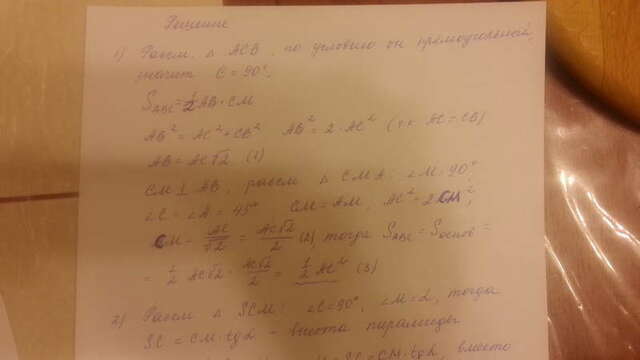 Решение
1) Рассм. △ ACB, по условию он прямоугольный,
значит C = 90°,
S_ABC = 1/2 AB · CM
AB² = AC² + CB²  AB² = 2 · AC² (т.к. AC = CB)
AB = AC√2 (1)
CM ⊥ AB, рассм △ CMA: ∠M = 90°,
∠C = ∠A = 45°  CM = AM, AC² = 2CM²,
CM = AC/√2 = AC√2/2 (2) тогда S_ABC = S_основ =
= 1/2 AC√2 · AC√2/2 = 1/2 AC² (3)
2) Рассм △ SCM: ∠C = 90°, ∠M = α, тогда
SC = CM · tgα - высота пирамиды
SC = CM · tgα, вместо